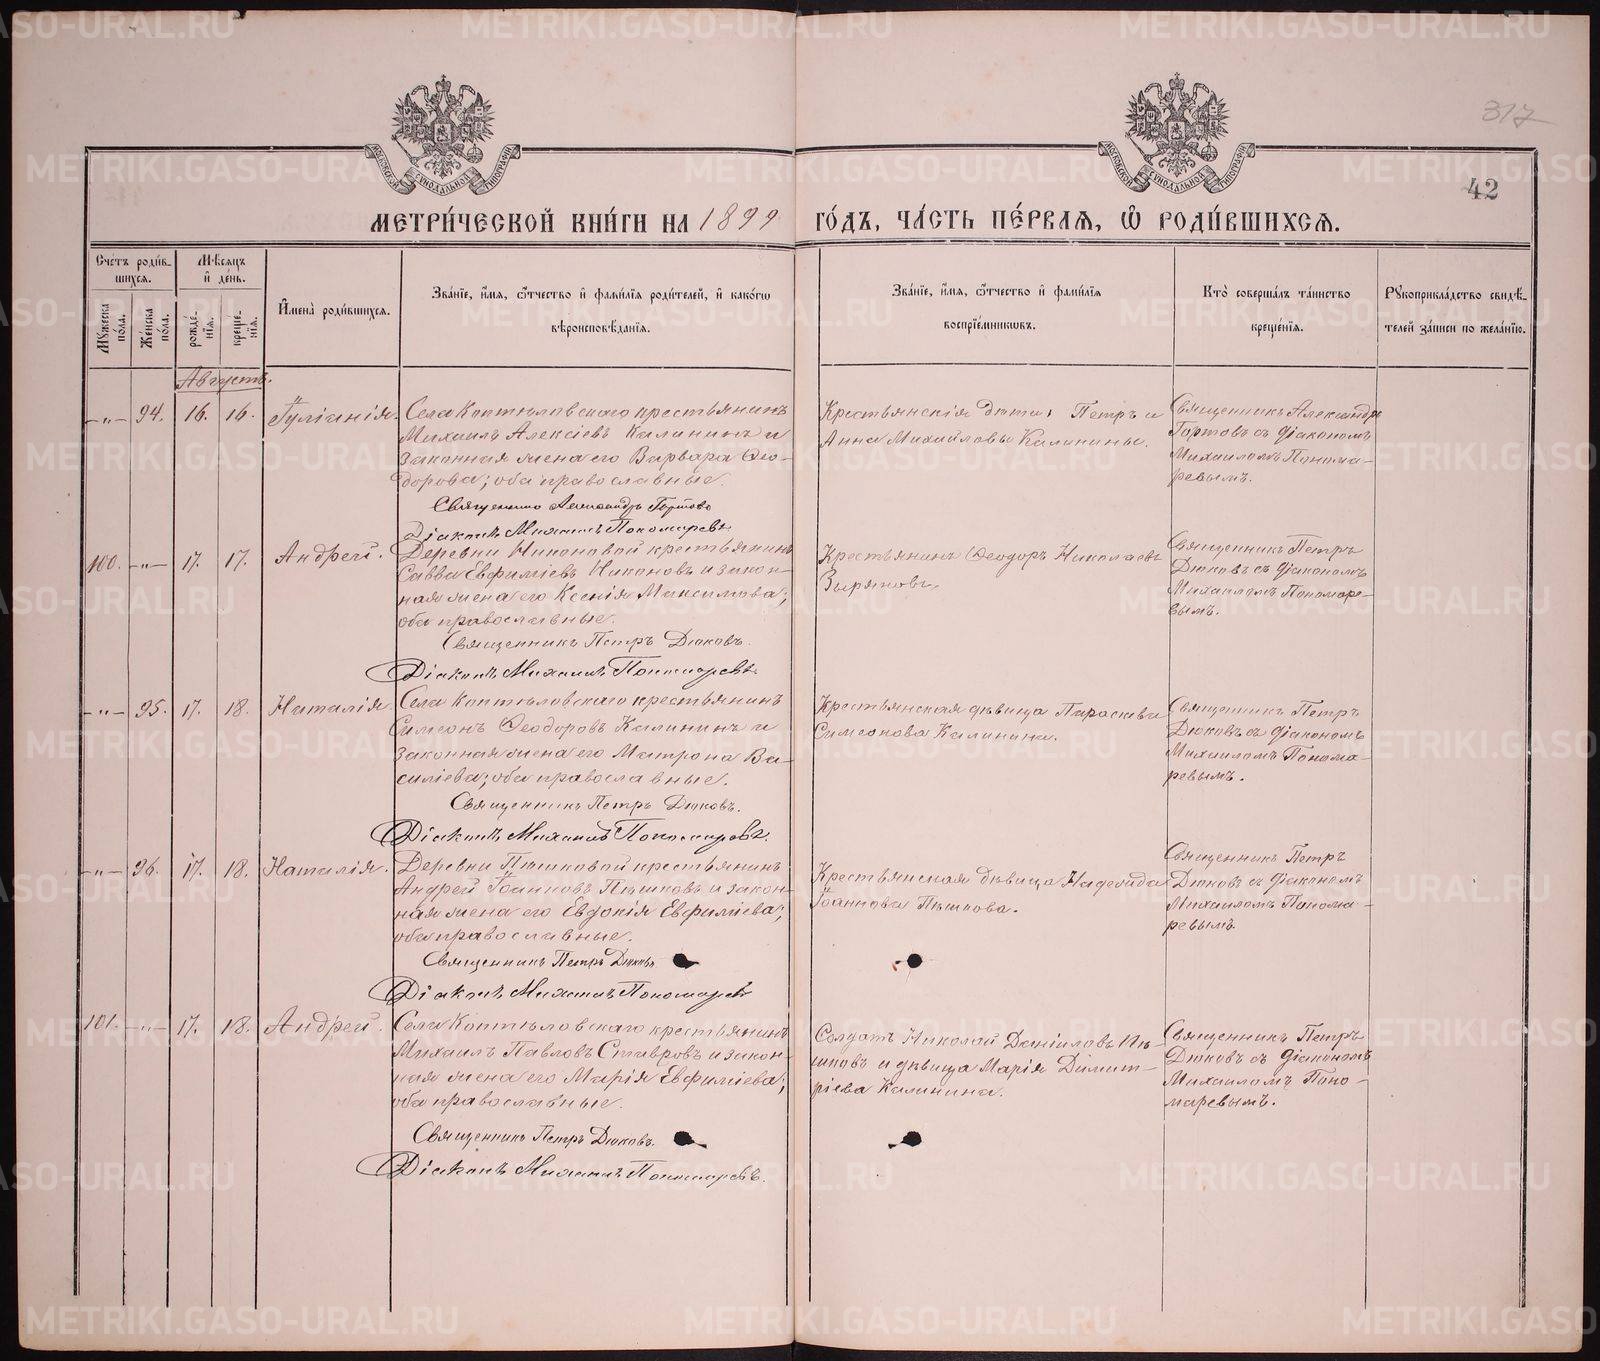 317
42
МЕТРИ́ЧЕСКОЙ КНИ́ГИ НА 1899 ГО́ДЪ, ЧА́СТЬ ПЕ́РВАѦ, Ѡ҆ РОДИ́ВШИХСѦ.
Сче́тъ роди́в-
шихсѧ.
Мꙋ́жеска по́ла.
Же́нска по́ла.
Мѣ́сѧцъ и҆ де́нь.
рожде́-
нїѧ.
креще́-
нїѧ.
И҆мена̀ роди́вшихсѧ.
Зва́нїе, и҆́мѧ, ѻ҆́тчество и҆ фами́лїѧ роди́телей, и҆ како́гѡ
вѣроисповѣ́данїѧ.
Зва́нїе, и҆́мѧ, ѻ҆́тчество и҆ фами́лїѧ
воспрїе́мникѡвъ.
Кто̀ соверша́лъ та́инство
креще́нїѧ.
Рꙋкоприкла́дство свидѣ́-
телей за́писи по жела́нїю.
Августъ.
—„— 94. 16. 16. Іуліанія.
Села Коптѣловскаго крестьянинъ
Михаилъ Алексіевъ Калининъ и
законная жена его Варвара Ѳео-
дорова; оба православные.
Священникъ Александръ Гортовъ
Діаконъ Михаилъ Пономаревъ
Крестьянскія дѣти: Петръ и
Анна Михайловы Калинины.
Священникъ Александръ
Гортовъ съ діакономъ
Михаиломъ Понома-
ревымъ.
100. —„— 17. 17. Андрей.
Деревни Никоновой крестьянинъ
Савва Евфиміевъ Никоновъ и закон-
ная жена его Ксенія Максимова;
оба православные.
Священникъ Петръ Дюковъ.
Діаконъ Михаилъ Пономаревъ.
Крестьянинъ Ѳеодоръ Николаевъ
Зыряновъ.
Священникъ Петръ
Дюковъ съ діакономъ
Михаиломъ Пономаре-
вымъ.
—„— 95. 17. 18. Наталія.
Села Коптѣловскаго крестьянинъ
Симеонъ Ѳеодоровъ Калининъ и
законная жена его Матрона Ва-
силіева; оба православные.
Священникъ Петръ Дюковъ.
Діаконъ Михаилъ Пономаревъ.
Крестьянская дѣвица Параскева
Симеонова Калинина.
Священникъ Петръ
Дюковъ съ діакономъ
Михаиломъ Понома-
ревымъ.
—„— 96. 17. 18. Наталія.
Деревни Пѣшковой крестьянинъ
Андрей Іоанновъ Пѣшковъ и закон-
ная жена его Евдокія Евфиміева;
оба православные.
Священникъ Петръ Дюковъ
Діаконъ Михаилъ Пономаревъ
Крестьянская дѣвица Надежда
Іоаннова Пѣшкова.
Священникъ Петръ
Дюковъ съ діакономъ
Михаиломъ Понома-
ревымъ.
101. —„— 17. 18. Андрей.
Села Коптѣловскаго крестьянинъ
Михаилъ Павловъ Ставровъ и закон-
ная жена его Марія Евфиміева;
оба православные.
Священникъ Петръ Дюковъ.
Діаконъ Михаилъ Пономаревъ.
Солдатъ Николай Даніиловъ Пѣ-
шковъ и дѣвица Марія Димит-
ріева Калинина.
Священникъ Петръ
Дюковъ съ діакономъ
Михаиломъ Поно-
маревымъ.
METRIKI.GASO-URAL.RU